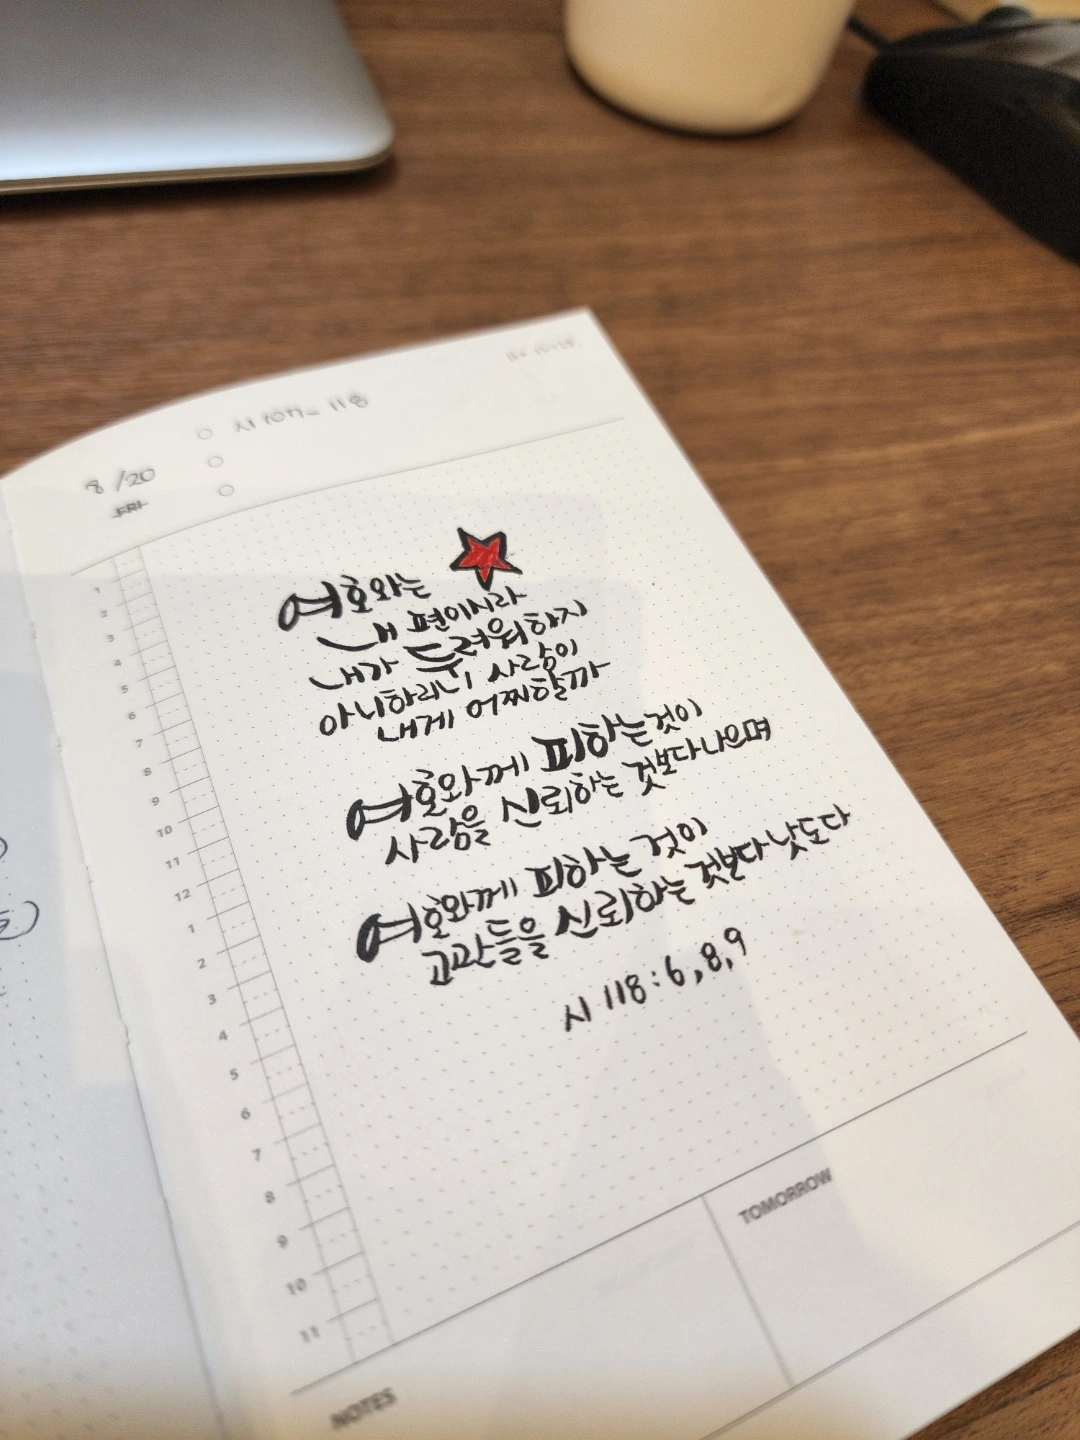 시 107-118
8/20
FRI
여호와는
내 편이시라
내가 두려워하지
아니하리니 사람이
내게 어찌할까
여호와께 피하는 것이
사람을 신뢰하는 것보다 나으며
여호와께 피하는 것이
고관들을 신뢰하는 것보다 낫도다
시 118:6,8,9
1
2
3
4
5
6
7
8
9
10
11
12
1
2
3
4
5
6
7
8
9
10
11
TOMORROW
NOTES